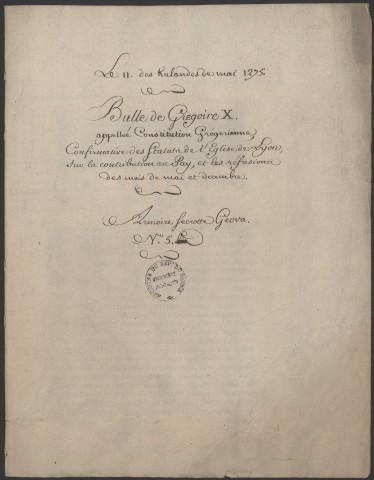 Le 11. des Kalandes de mai 1275
Bulle de Gregoire X.
appellée Constitution Grégorienne,
Confirmative des Statuts de l'Eglise de Lyon,
Sur la contribution au Pay, et les
des mois de mai et decembre.
Armoire secrette Geova.
N.º 5.